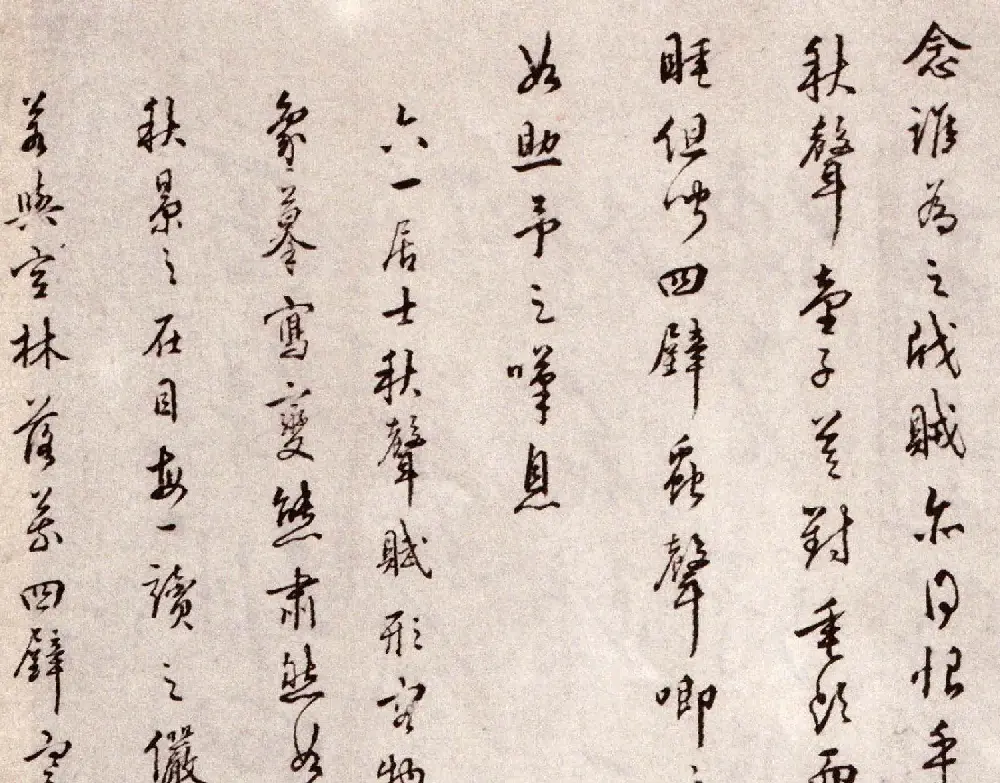 念誰為之戕賊亦何恨乎
秋聲童子莫對垂頭而
睡但聞四壁蟲聲唧
如助予之嘆息
六一居士秋聲賦形容物
象摹寫變態肅然如
秋景之在目每一讀之儼
若與空林落葉四壁寒